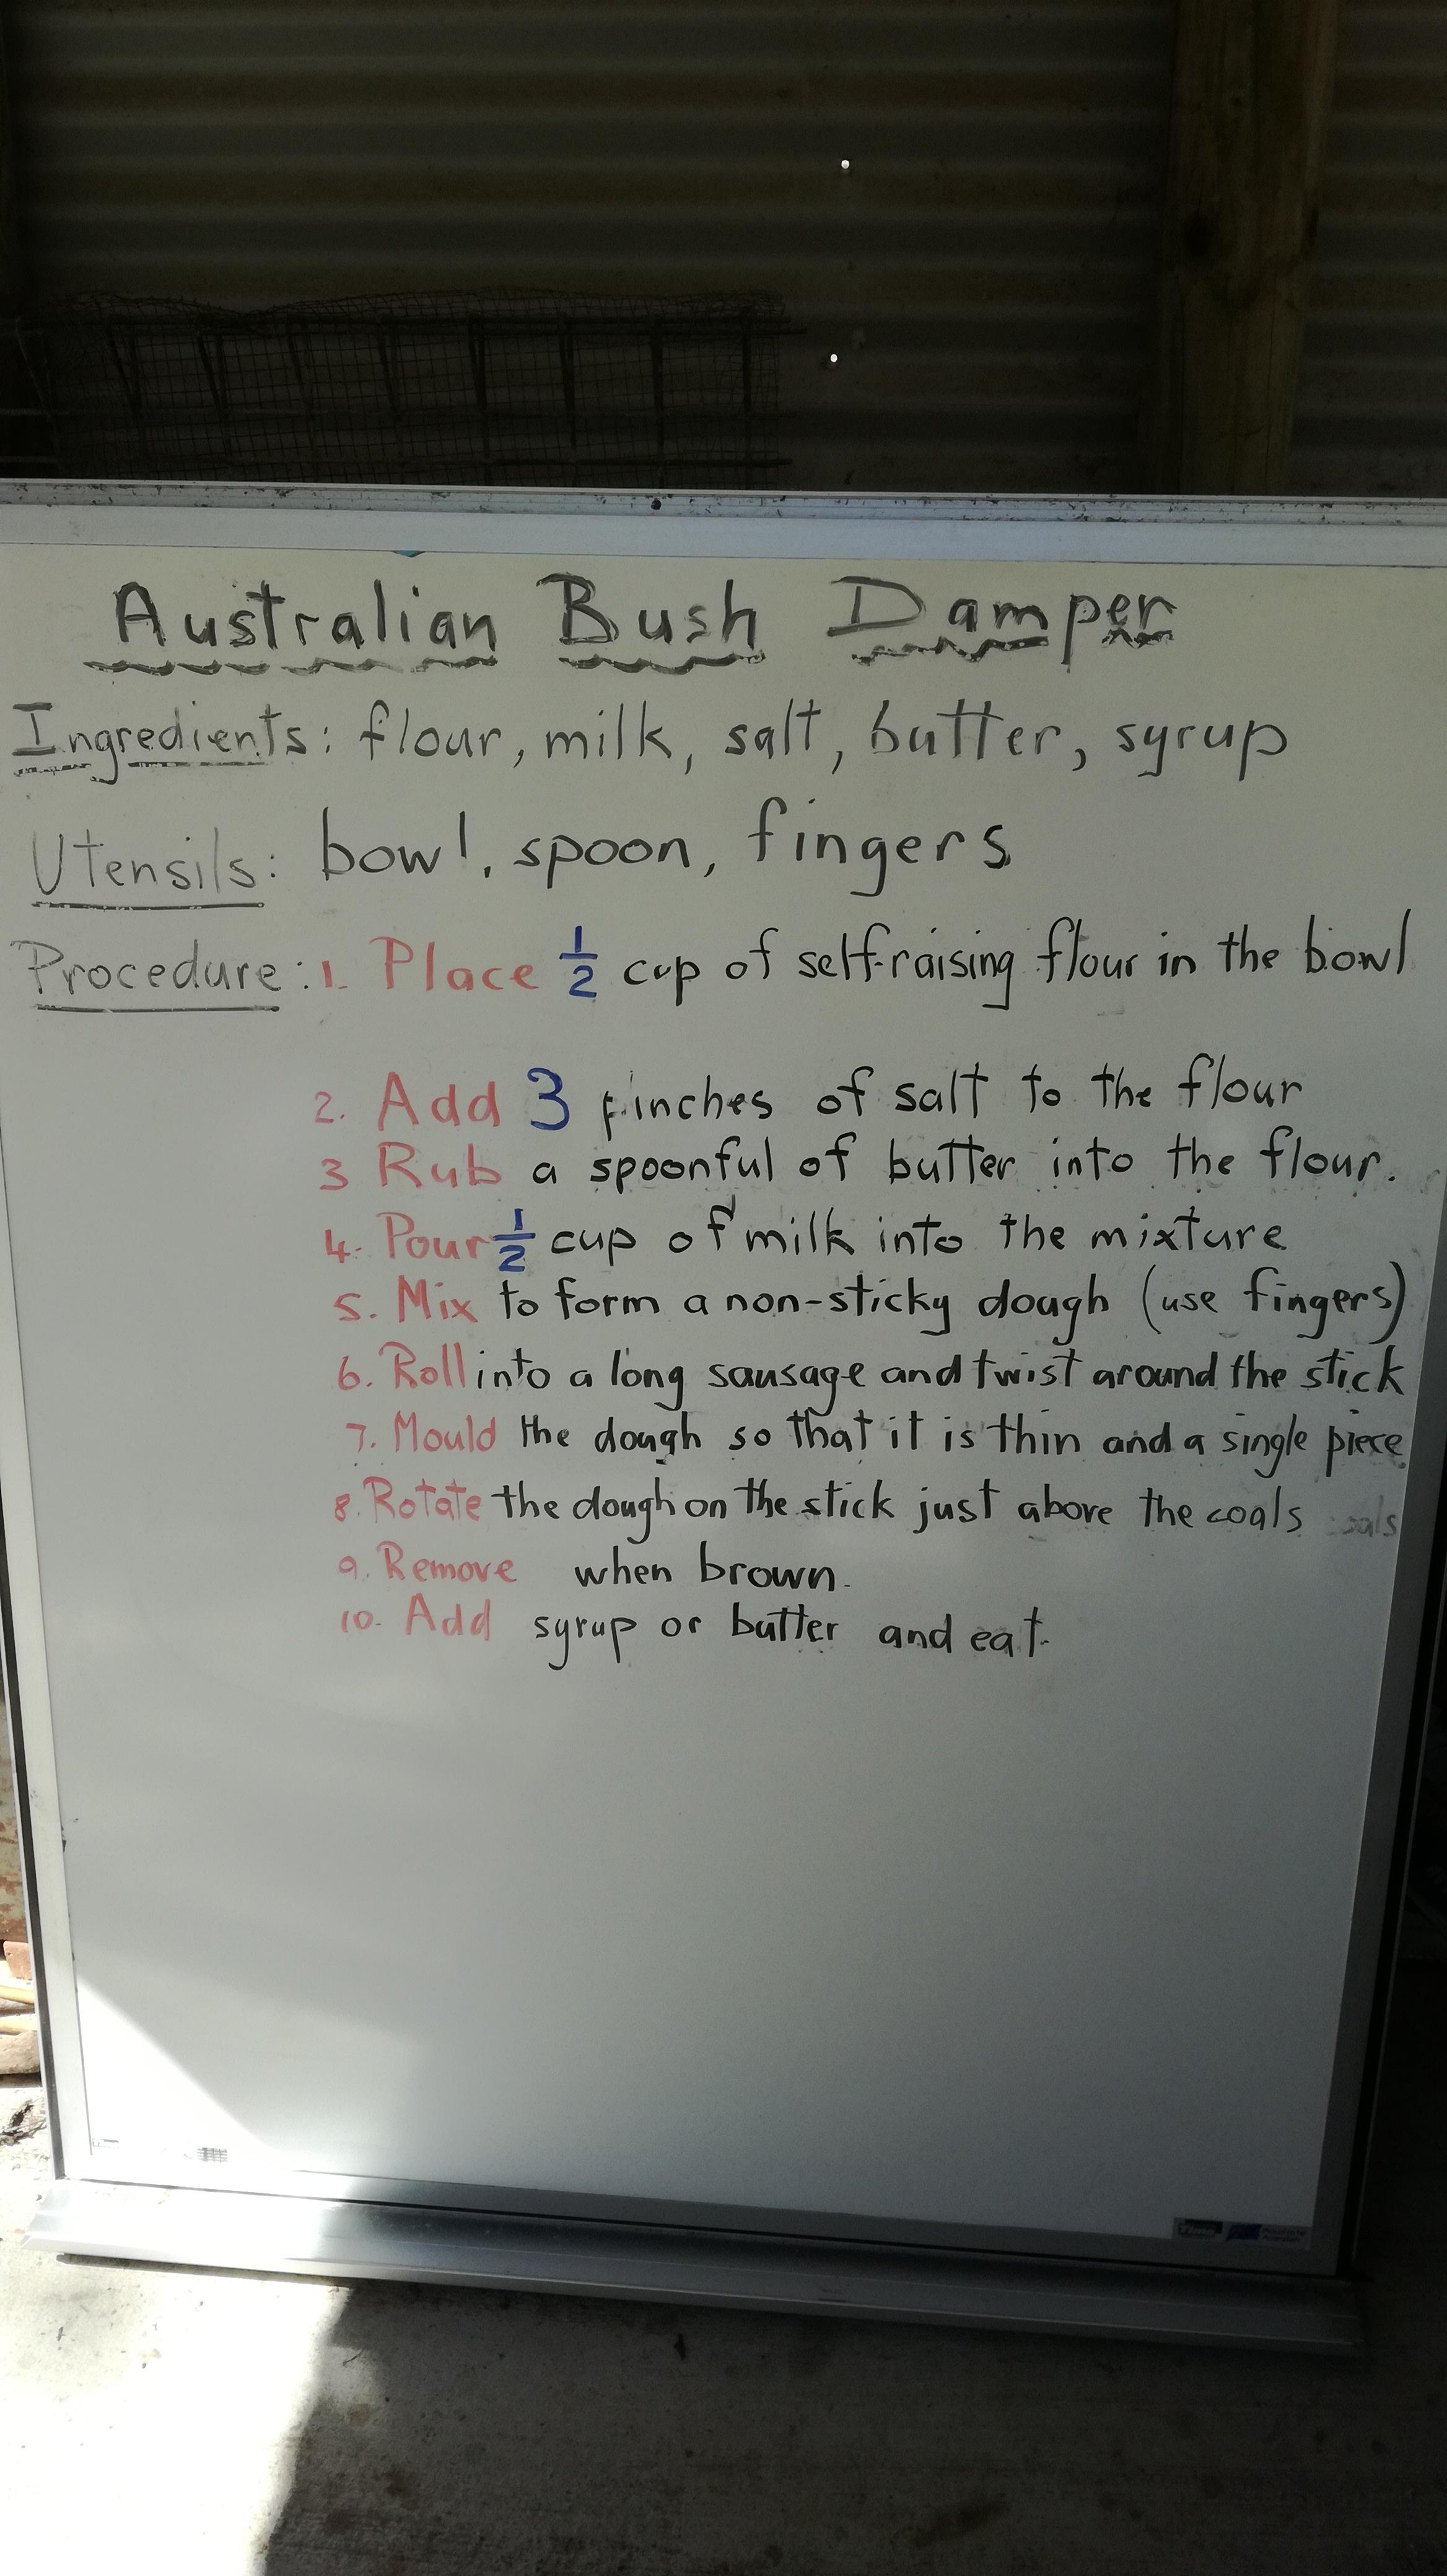 Australian Bush Damper
Ingredients: flour, milk, salt, butter, syrup
Utensils: bowl, spoon, fingers
Procedure: 1. Place 1/2 cup of self-raising flour in the bowl
2. Add 3 pinches of salt to the flour
3 Rub a spoonful of butter into the flour.
4. Pour 1/2 cup of milk into the mixture
5. Mix to form a non-sticky dough (use fingers)
6. Roll into a long sausage and twist around the stick
7. Mould the dough so that it is thin and a single piece
8. Rotate the dough on the stick just above the coals
9. Remove when brown.
10. Add syrup or butter and eat.